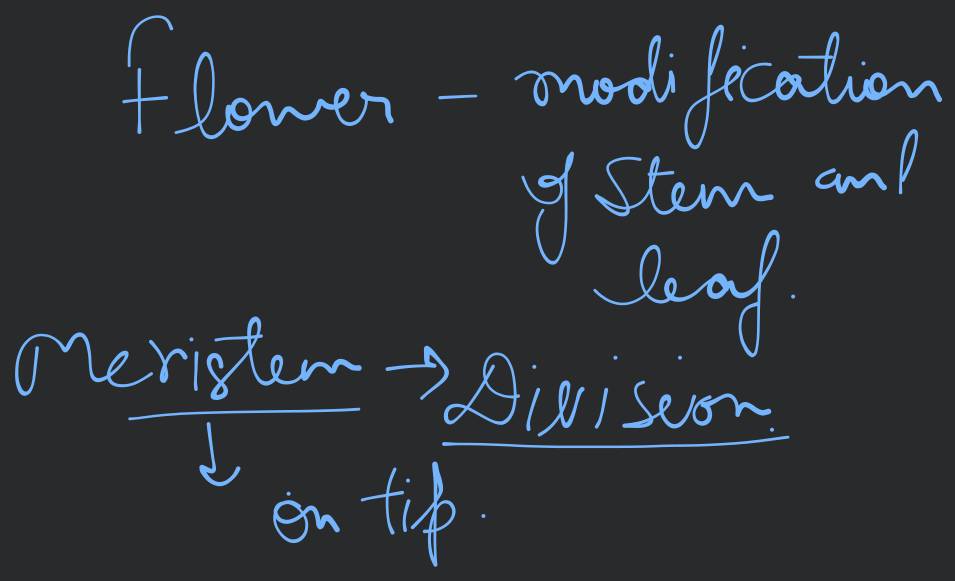 Flower - modification
of Stem and
leaf.
Meristem → Division.
↓
on tip.